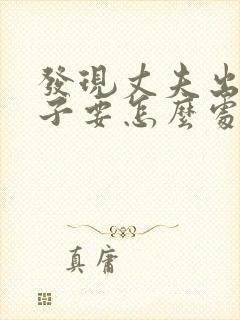 發現丈夫出
子要怎麼處
真庸